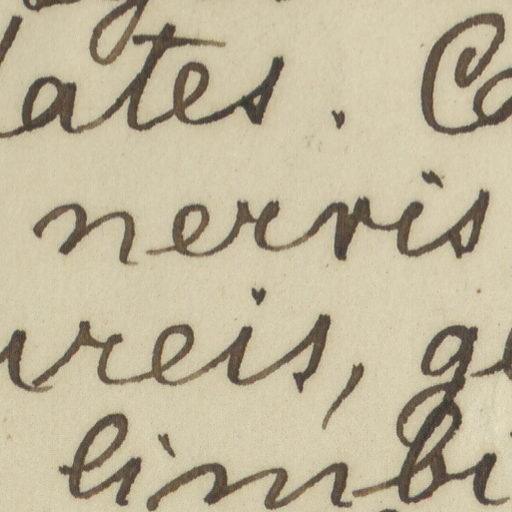 lates. Co
nervis
ureis, ge
limbi